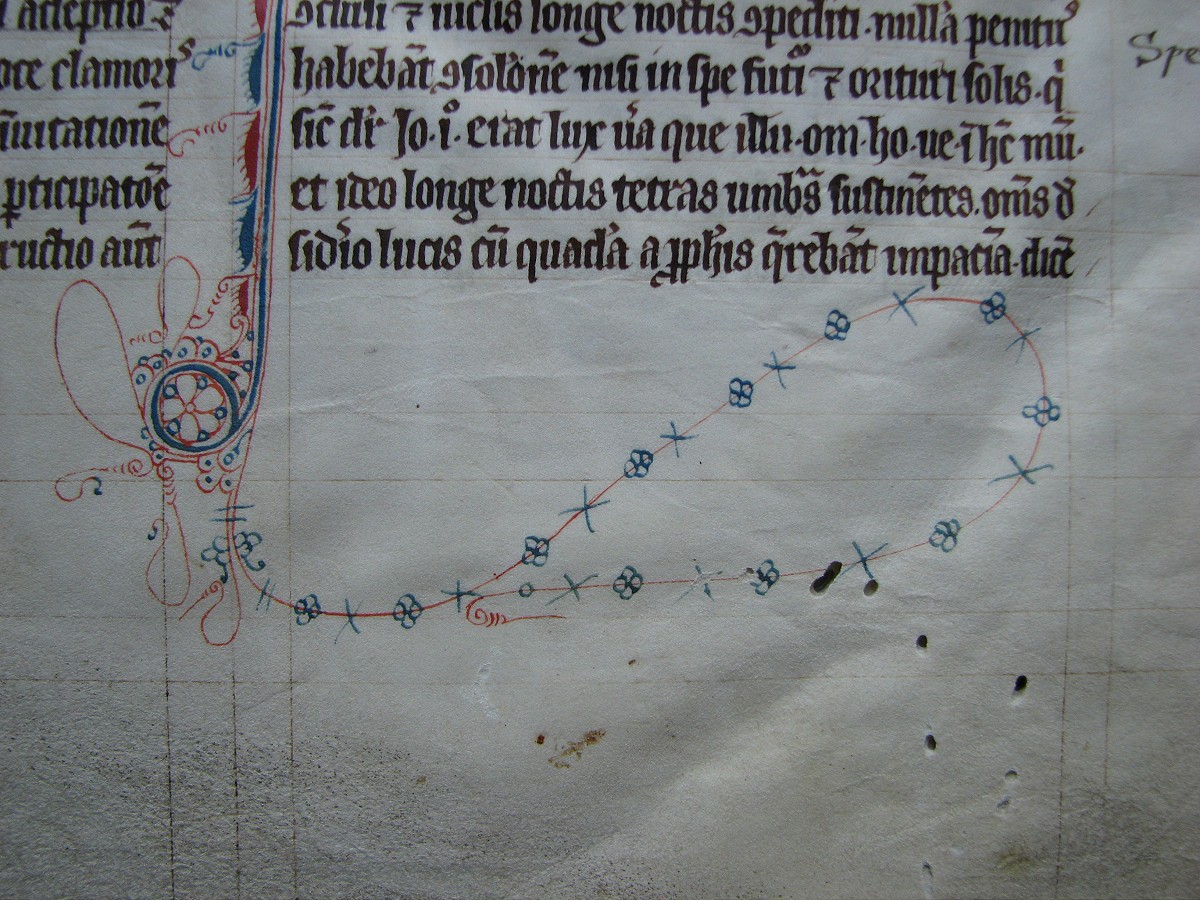 adeptio
oce clamorꝰ
īuitationē
ꝑticipatōē
ructio aūt
ꝯclusi ⁊ uiclis longe noctis ꝯpediti · nullā penitꝰ
habebāt ꝯsolōnē nisi in spe futͦi ⁊ orituri solis · q̇
sic̄ dr̄ Jo · iͦ · erat lux ūa que illu · om · ho · ue · ī hc̄ mū ·
et ideo longe noctis tetras umbͣs sustinētes . om̄s ꝺ
sidio lucis cū quadā a ꝓph̄is q̄rebāt impaciā · dicē
Spe